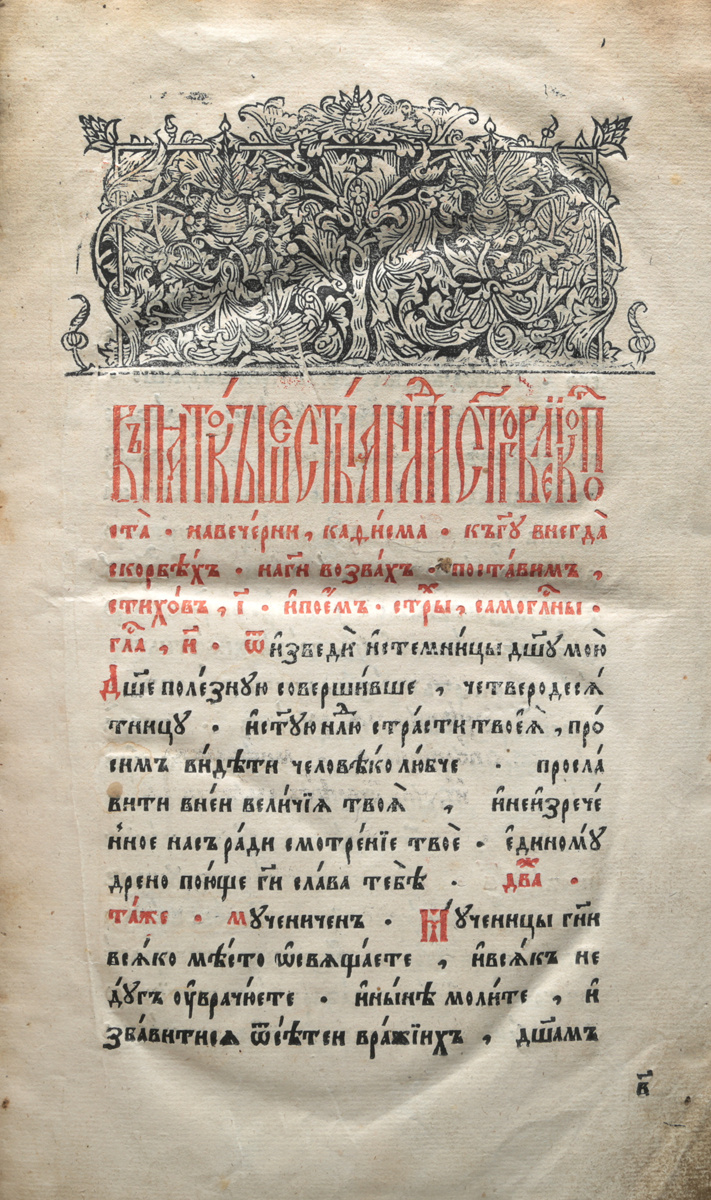 въ пато́къ шестыѧ нⷣли ст҃го вели́ко поⷭ҇
ста̀ · навече́рни, каѳи́сма · къ гдⷭ҇у внегда̀
скорбѣ́хъ · нагⷭ҇и возва́хъ · поста́вимъ ,
стихо́въ , і҃ · и҆пое́мъ · стⷯры , самогла́сны ·
гла́ , и҃ · ѿ и҆зведѝ и҆стемни́цы дш҃у мою̀
Дш҃е поле́зную соверши́вше , четвероде́сѧ
тницу · и҆ст҃ую нⷣлю стра́сти твоеѧ̀ , про́
симъ ви́дѣти человѣколю́бче · просла́
вити вне́и вели́чїѧ твоѧ̀ , и҆неизрече́
нное насъ ра́ди смотре́нїе твоѐ · е҆диному́
дрено пою́ще гⷭ҇и сла́ва тебѣ̀ · два́ ·
та́же · мученичен · Му́ченицы гⷭ҇ни
всѧ́ко мѣ́сто ѡ҆свѧща́ете , и҆всѧ́къ не
ду́гъ ѹ҆врачю́ете · и҆ны́нѣ моли́те , и҆
зба́витисѧ ѿсѣ́теи вра́жїихъ , дш҃амъ
в҃